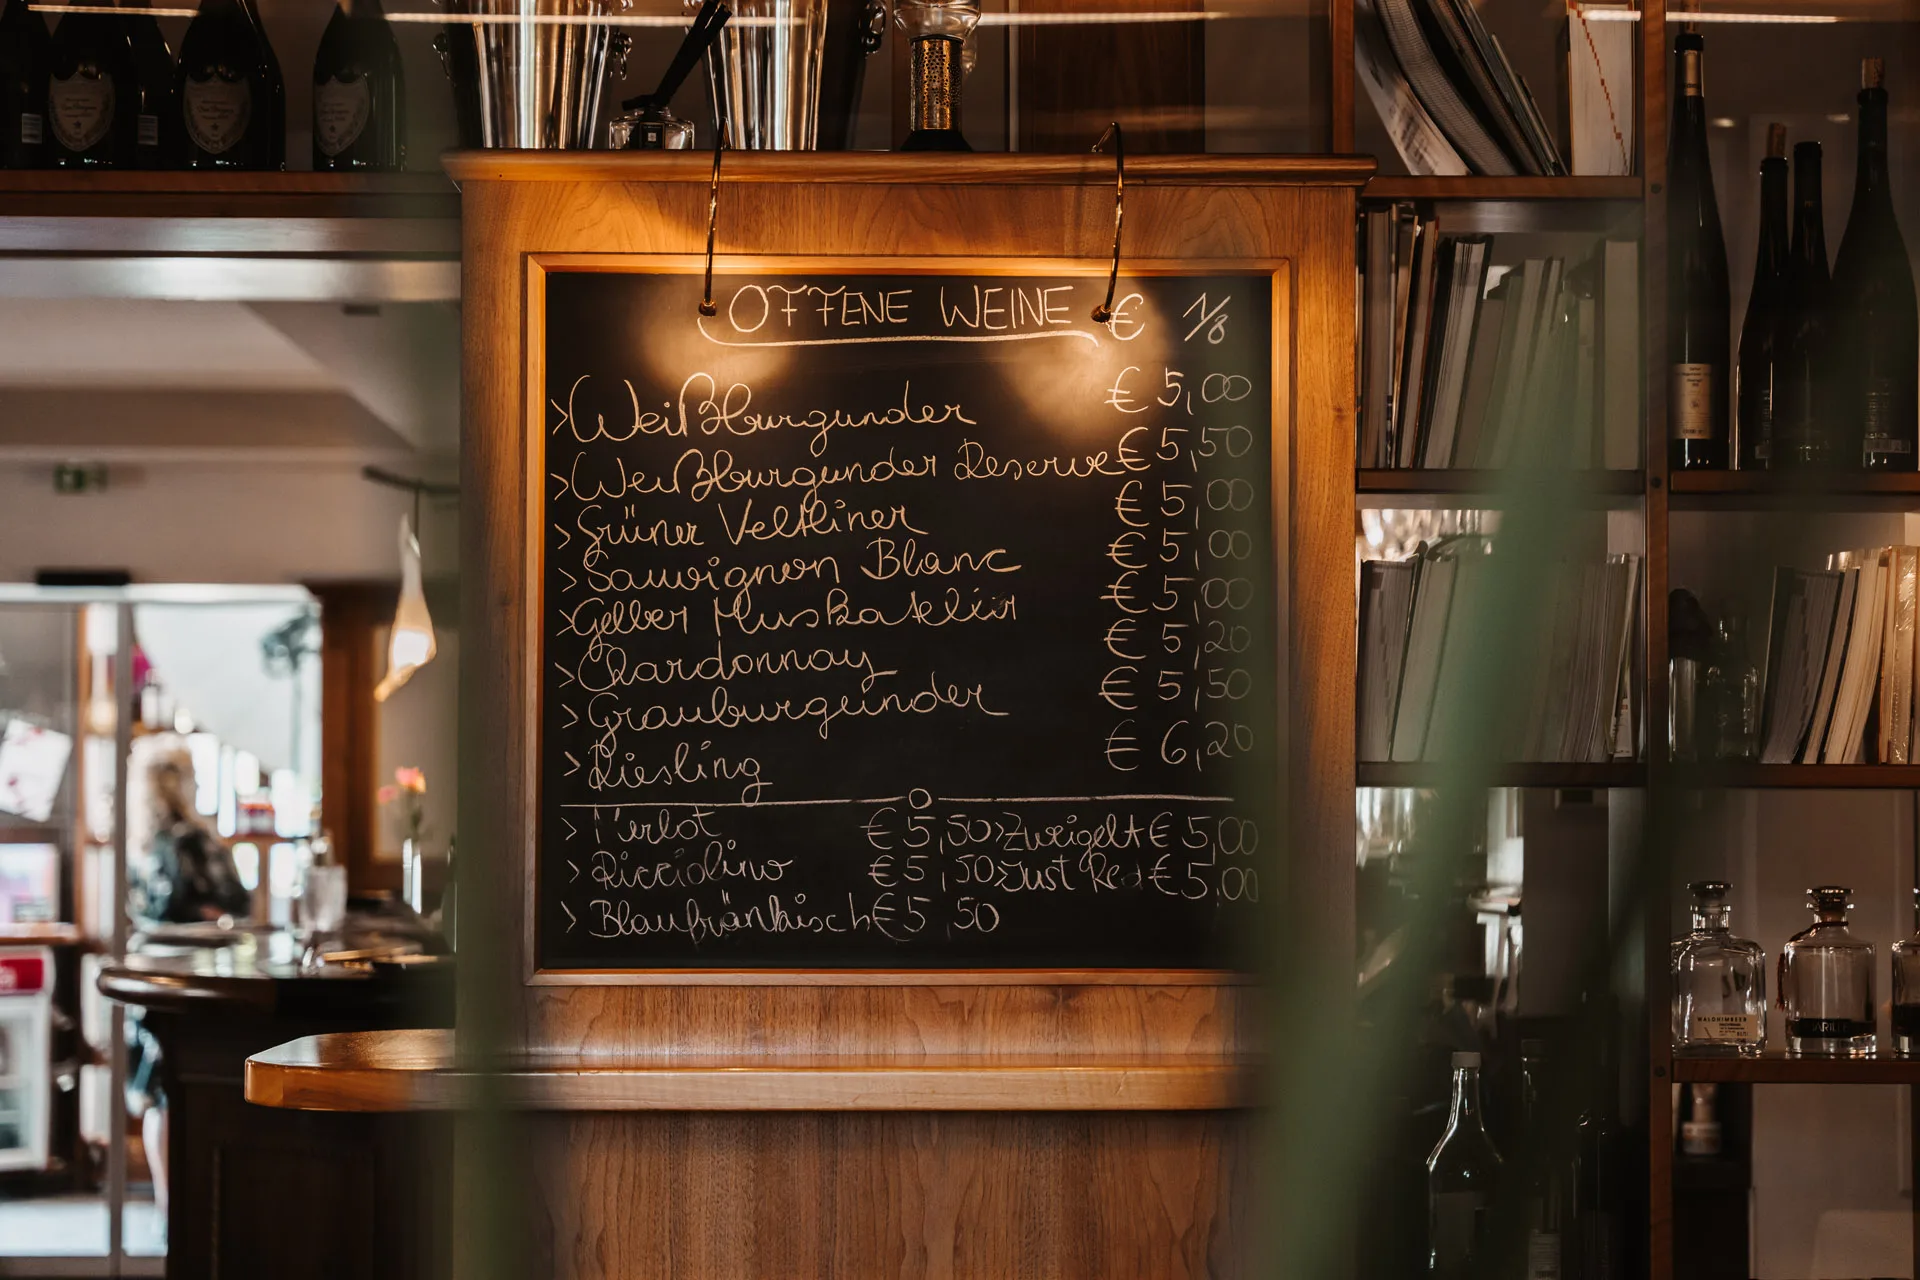 OFFENE WEINE € 1/8
>Weißburgunder €5,00
>Weißburgunder Reserve €5,50
>Grüner Veltliner €5,00
>Sauvignon Blanc €5,00
>Gelber Muskateller €5,00
>Chardonnay €5,20
>Grauburgunder €5,50
>Riesling €6,20
>Merlot €5,50 >Zweigelt €5,00
>Ricciolino €5,50 >Just Red €5,00
>Blaufränkisch €5,50
WALDHIMBEER